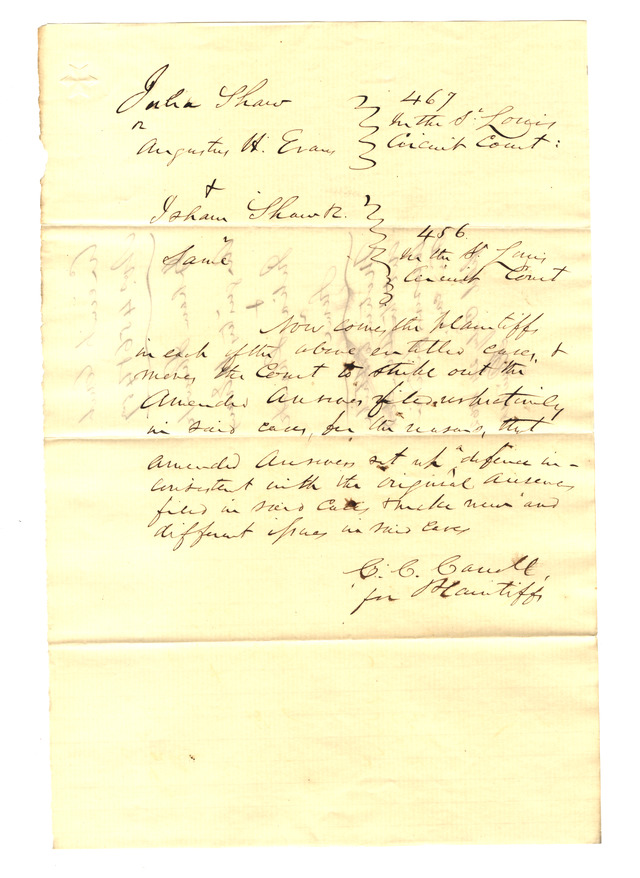 Julia Shaw } 467
vs } In the St Louis
Augustus H. Evans } Circuit Court:
&
Isham Shaw vs. } 456
Same } In the St. Louis
Circuit Court
Now comes the plaintiffs
in each of the above entitled cases, &
moves the Court to strike out the
Amended Answers filed respectively
in said cases, for the reasons, that
amended Answers set up defence in-
consistent with the original answers
filed in said cases & make new and
different issues in said cases
C. C. Carroll
for Plaintiffs